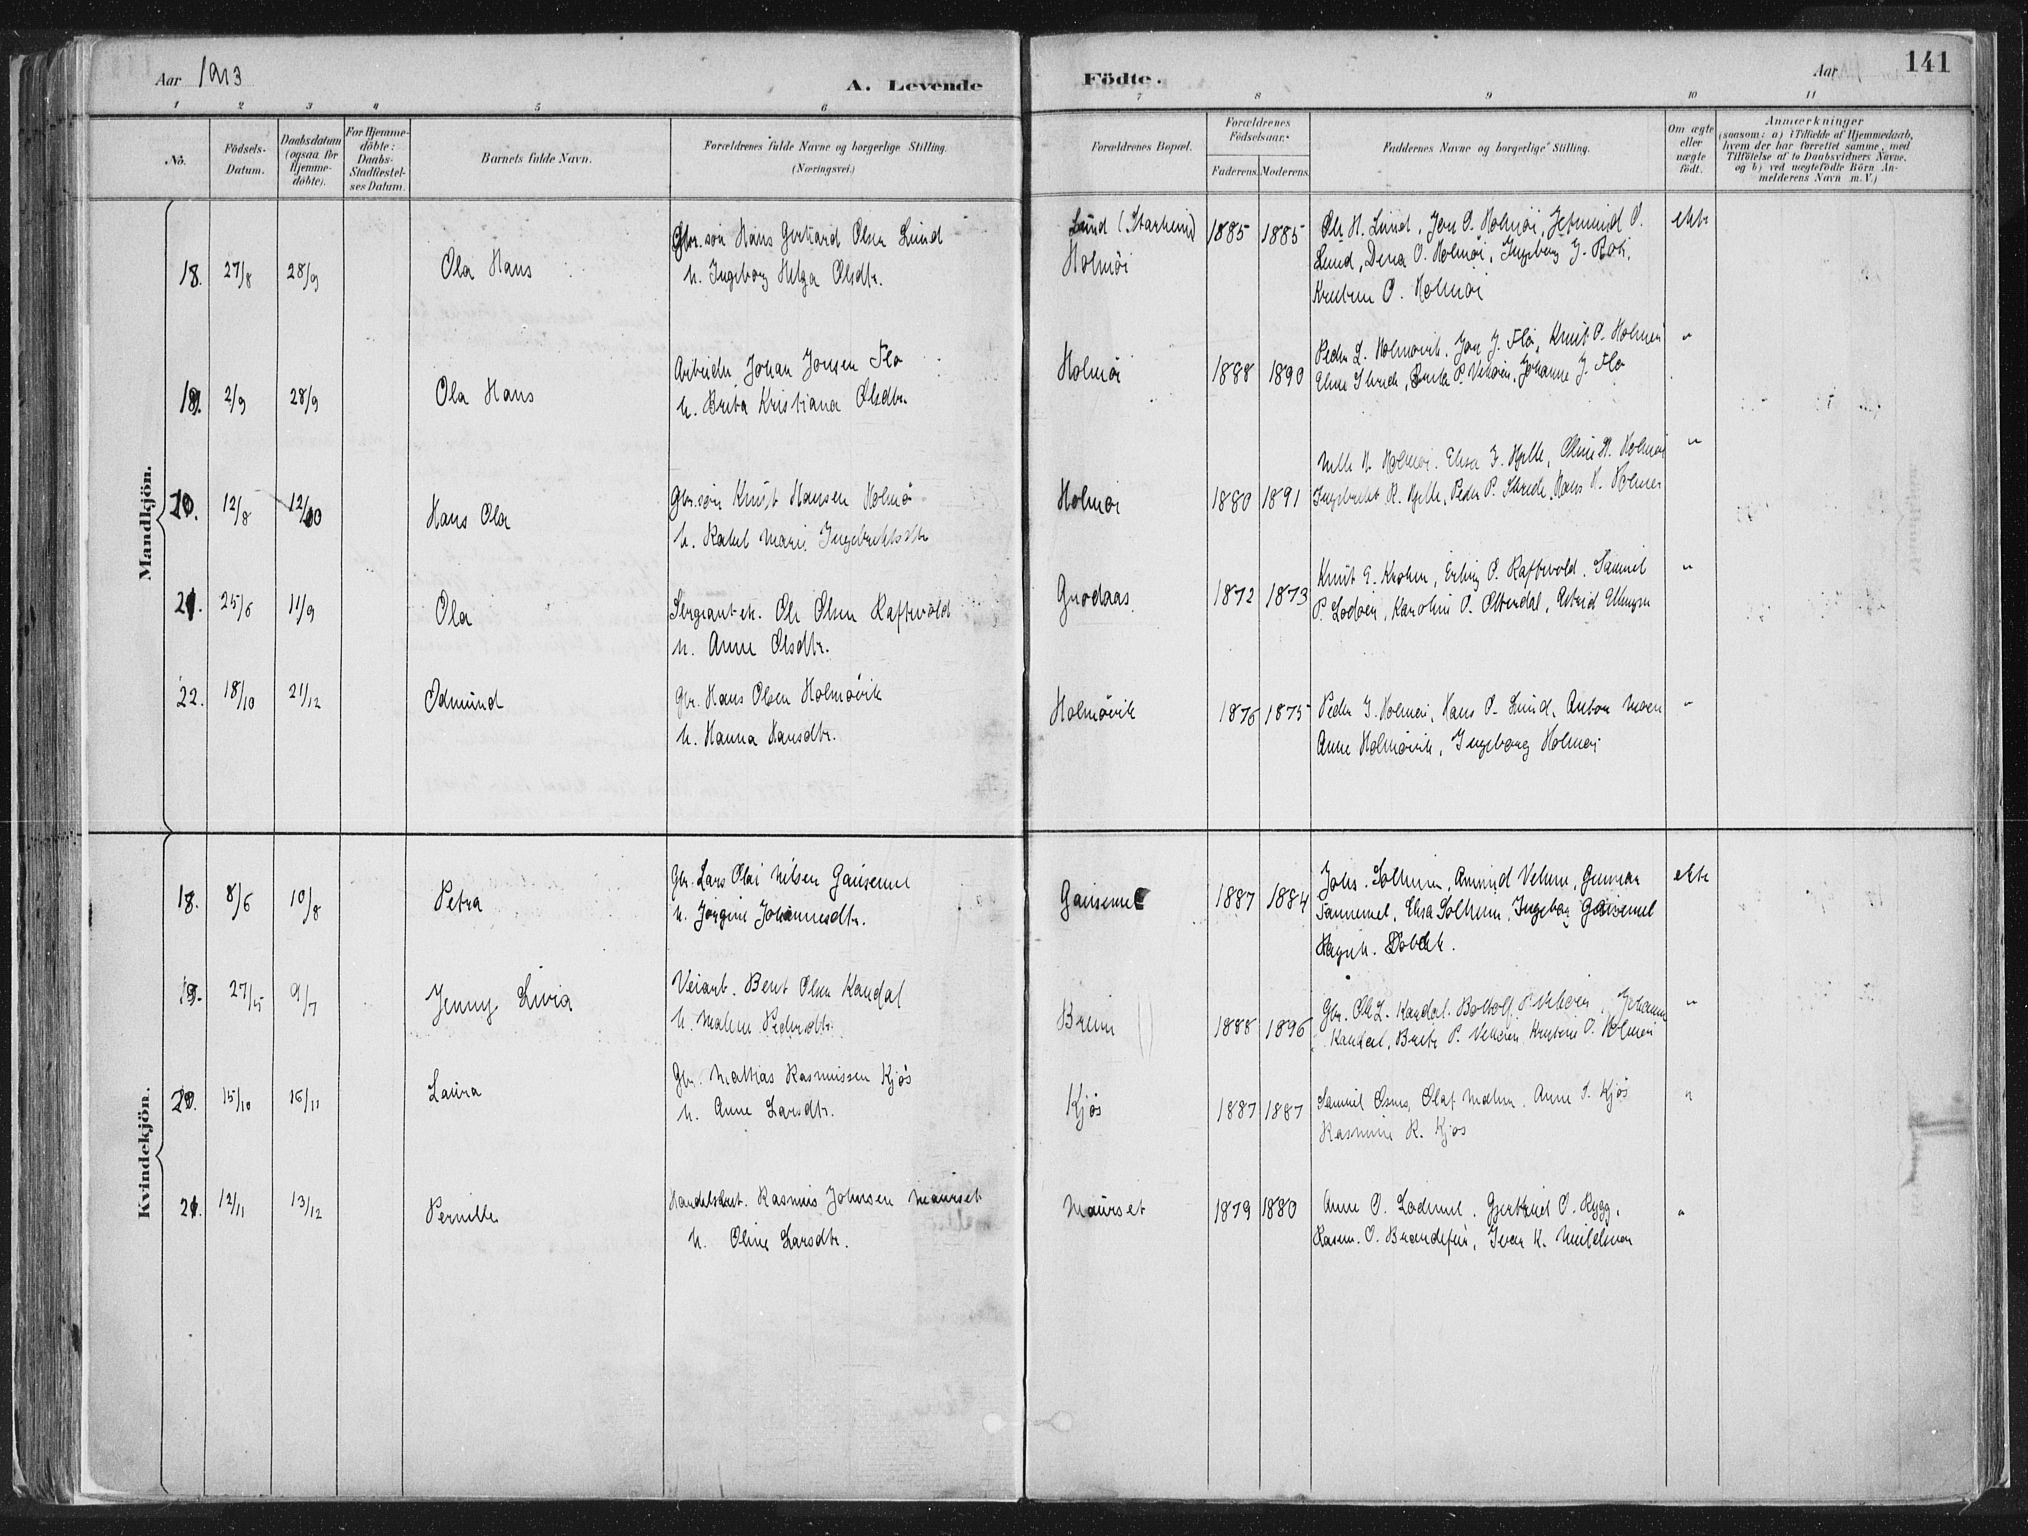 Aar 1913
A. Levende
Födte.
Aar
141
1 2 3 4 5 6 7 8 9 10 11
No.
Födsels-
Datum.
Daabsdatum
(ogsaa for
Hjemme-
döbte).
For Hjemme-
döbte:
Daabs-
Stadfæstel-
ses Datum.
Barnets fulde Navn.
Forældrenes fulde Navne og borgerlige Stilling.
(Næringsvei.)
Forældrenes Bopæl.
Forældrenes
Födselsaar.
Faderens. Moderens.
Faddernes Navne og borgerlige Stilling.
Om ægte
eller
uægte
födt.
Anmærkninger
(saasom: a) i Tilfælde af Hjemmedaab,
hvem der har forrettet samme, med
Tilföielse af to Daabsvidners Navne,
og b) ved uægtefödte Börn An-
melderens Navn m. V.)
Mandkjön.
18. 27/8 28/9 Ola Hans
Gbr.søn Hans Gerhard Olsen Lund
h. Ingeborg Helga Olsdtr.
Lund (Starheim)
Holmøi
1885 1885
Ole H. Lund, Jon O. Holmøi, Jetmund O.
Lund, Dena O. Holmøi, Ingeborg J.
O. Holmøi
ekte
19. 2/9 28/9 Ola Hans
Arbeider Johan Jonsen Flo
h. Brita Kristiana Olsdtr.
Holmøi
1888 1890
Peder L. Holmøvik, Jon J. Flo, Knut O. Holmøi
Johanne J. Flo
"
20. 12/8 12/10 Hans Ola
Gbr.søn Knut Hansen Holmø
h. Rakel Marie Ingebrektsdtr
Holmøi
1880 1891
H. Holmøi, Elisa I. Hjelle, Oline H. Holmøi
Ingebrekt R. Hjelle, Peder P. Skrede, Hans H. Holmøi
"
21. 25/6 11/9 Ola
Sergeant Ole Olsen Raftevold
h. Anne Olsdtr.
Grodaas
1872 1873
Knut E. Kroken, Erling O. Raftevold, Samuel
P. Lødøen, Karoline O. Otterdal, Astrid
"
22. 18/10 21/12 Odmund
Gbr. Hans Olsen Holmøvik
h. Hanna Hansdtr.
Holmøvik
1876 1875
Peder I. Holmøi, Hans O. Lund, Anton Moen
Anne Holmøvik, Ingeborg Holmøi
"
Kvindekjön.
18. 8/6 10/8 Petra
Gbr. Lars Olai Nilsen Gausemel
h. Jørgine Johannesdtr.
Gausemel
1887 1884
Johs. Solheim, Amund Gunnar
Elisa Solheim, Ingeborg Gausemel
ekte
19. 27/5 9/7 Jenny Livia
Veiarb. Bent Olsen Kandal
h. Malene Pedersdtr.
Breim
1888 1896
Gbr. Ole L. Kandal, Johanne
Kandal, Brite P. Kristine O. Holmøi
"
20. 15/10 16/11 Laura
Gbr. Mathias Rasmussen Kjøs
h. Anne Larsdtr.
Kjøs
1887 1887
Samuel Olaf Anne S. Kjøs
Rasmine R. Kjøs
"
21. 12/11 13/12 Pernille
Rasmus Johnsen Maurset
h. Oline Larsdtr.
Maurset
1879 1880
Anne O. Gjertrud O. Rygg,
Rasm. O. Ivar K.
"